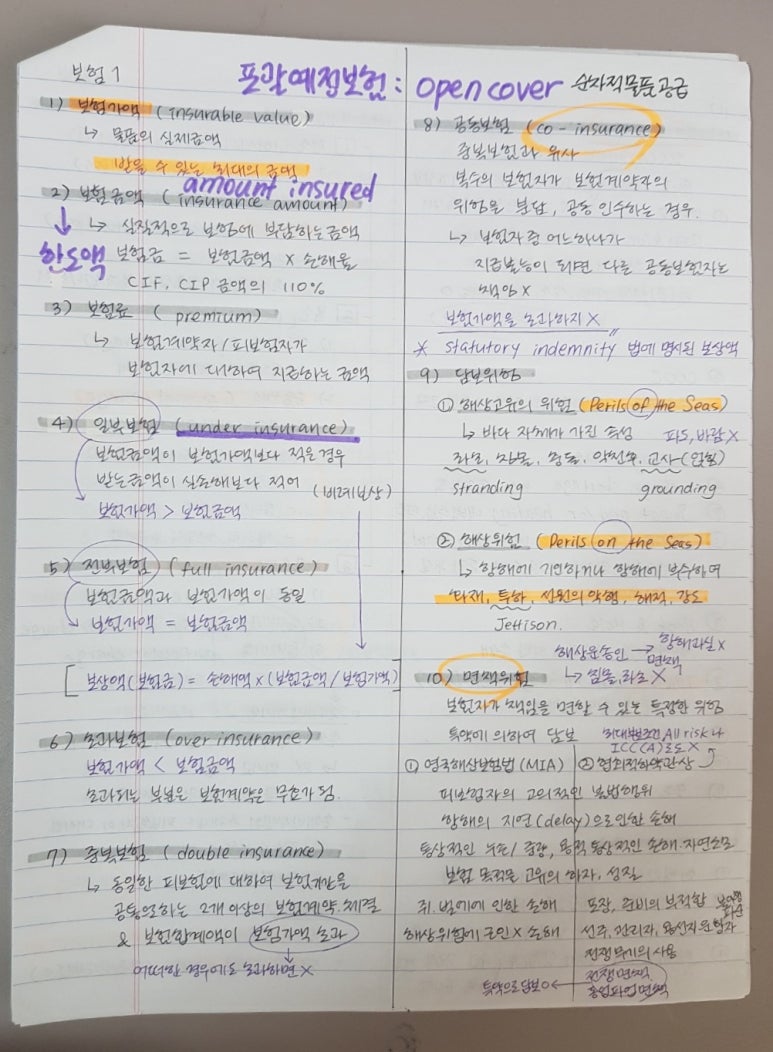 보험 1
포괄예정보험: open cover 순차적물품공급
1) 보험가액 (insurable value)
↳ 물품의 실제금액
받을 수 있는 최대의 금액
amount insured
2) 보험금액 (insurance amount)
↳ 실질적으로 보험에 부담하는 금액
한도액 보험금 = 보험금액 × 손해율
CIF, CIP 금액의 110%
3) 보험료 (premium)
↳ 보험계약자/피보험자가
보험자에 대하여 지급하는 금액
4) 일부보험 (under insurance)
보험금액이 보험가액보다 적은 경우
받는금액이 실손해보다 적어 (비례보상)
보험가액 > 보험금액
5) 전부보험 (full insurance)
보험금액과 보험가액이 동일
보험가액 = 보험금액
[보상액(보험금) = 손해액 × (보험금액/보험가액)]
6) 초과보험 (over insurance)
보험가액 < 보험금액
초과되는 부분은 보험계약은 무효가 됨.
7) 중복보험 (double insurance)
↳ 동일한 피보험에 대하여 보험기간을
공통으로하는 2개 이상의 보험계약 체결
& 보험합계액이 보험가액 초과
어떠한 경우에도 초과하면 ×
8) 공동보험 (co-insurance)
중복보험과 유사
복수의 보험자가 보험계약자의
위험을 분담, 공동 인수하는 경우.
↳ 보험자 중 어느하나가
지급불능이 되면 다른 공동보험자는
책임 ×
보험가액을 초과하지 ×
* statutory indemnity 법에 명시된 보상액
9) 담보위험
① 해상고유의 위험 (Perils of the Seas)
↳ 바다 자체가 가진 속성 파도, 바람 ×
좌초, 침몰, 충돌, 악천후, 교사(
stranding grounding
② 해상위험 (Perils on the Seas)
↳ 항해에 기인하거나 항해에 부수하여
화재, 투하, 선원의 악행, 해적, 강도
Jettison.
해상운송인 → 항해과실 ×
면책
10) 면책위험 ↳ 침몰, 좌초 ×
보험자가 책임을 면할 수 있는 특정한 위험
특약에 의하여 담보 최대담보조건 All risk나
ICC(A)로도 ×
① 영국해상보험법 (MIA) ② 협회적하약관상
피보험자의 고의적인 불법행위
항해의 지연(delay)으로 인한 손해
통상적인 누손/중량, 용적 통상적인 손해·자연소모
보험 목적물 고유의 하자, 성질
쥐, 벌레에 인한 손해
해상위험에 근인 × 손해
포장, 준비의 부적합
선주, 관리자, 용선자 운항자 파산
전쟁무기의 사용
전쟁면책
동맹파업면책
특약으로 담보 ○